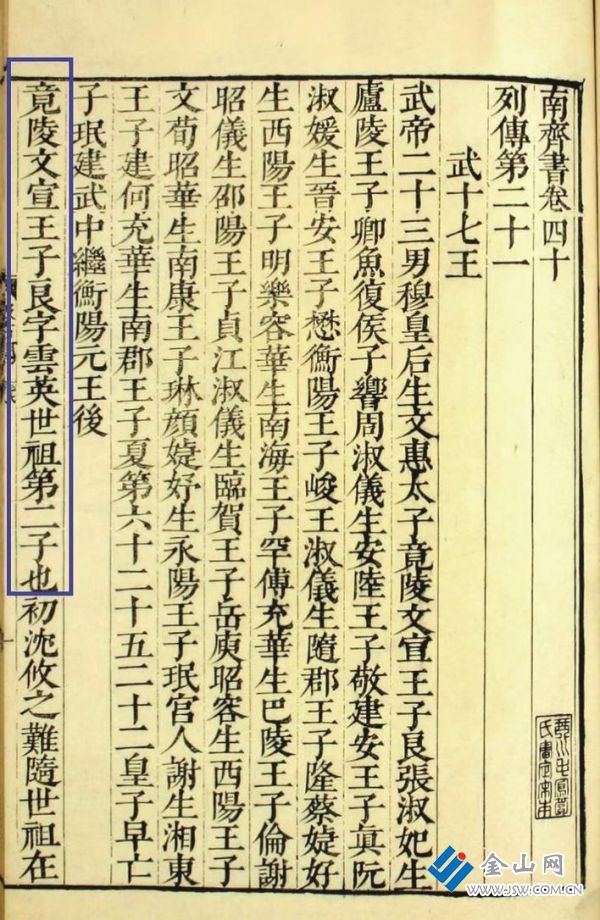 南齊書卷四十
列傳第二十一
武十七王
武帝二十三男穆皇后生文惠太子竟陵文宣王子良張淑妃生
廬陵王子卿魚復侯子響周淑儀生安陸王子敬建安王子眞阮
淑媛生晉安王子懋衡陽王子峻王淑儀生隨郡王子隆蔡婕妤
生西陽王子明樂容華生南海王子罕傅充華生巴陵王子倫謝
昭儀生邵陽王子貞江淑儀生臨賀王子岳庾昭容生西陽王子
文荀昭華生南康王子琳顔婕妤生永陽王子珉宮人謝生湘東
王子建何充華生南郡王子夏第六十二十五二十二皇子早亡
子珉建武中繼衡陽元王後
竟陵文宣王子良字雲英世祖第二子也初沈攸之難隨世祖在
琴川毛鳳苞
氏審定宋本
金山网
www.JSW.com.cn